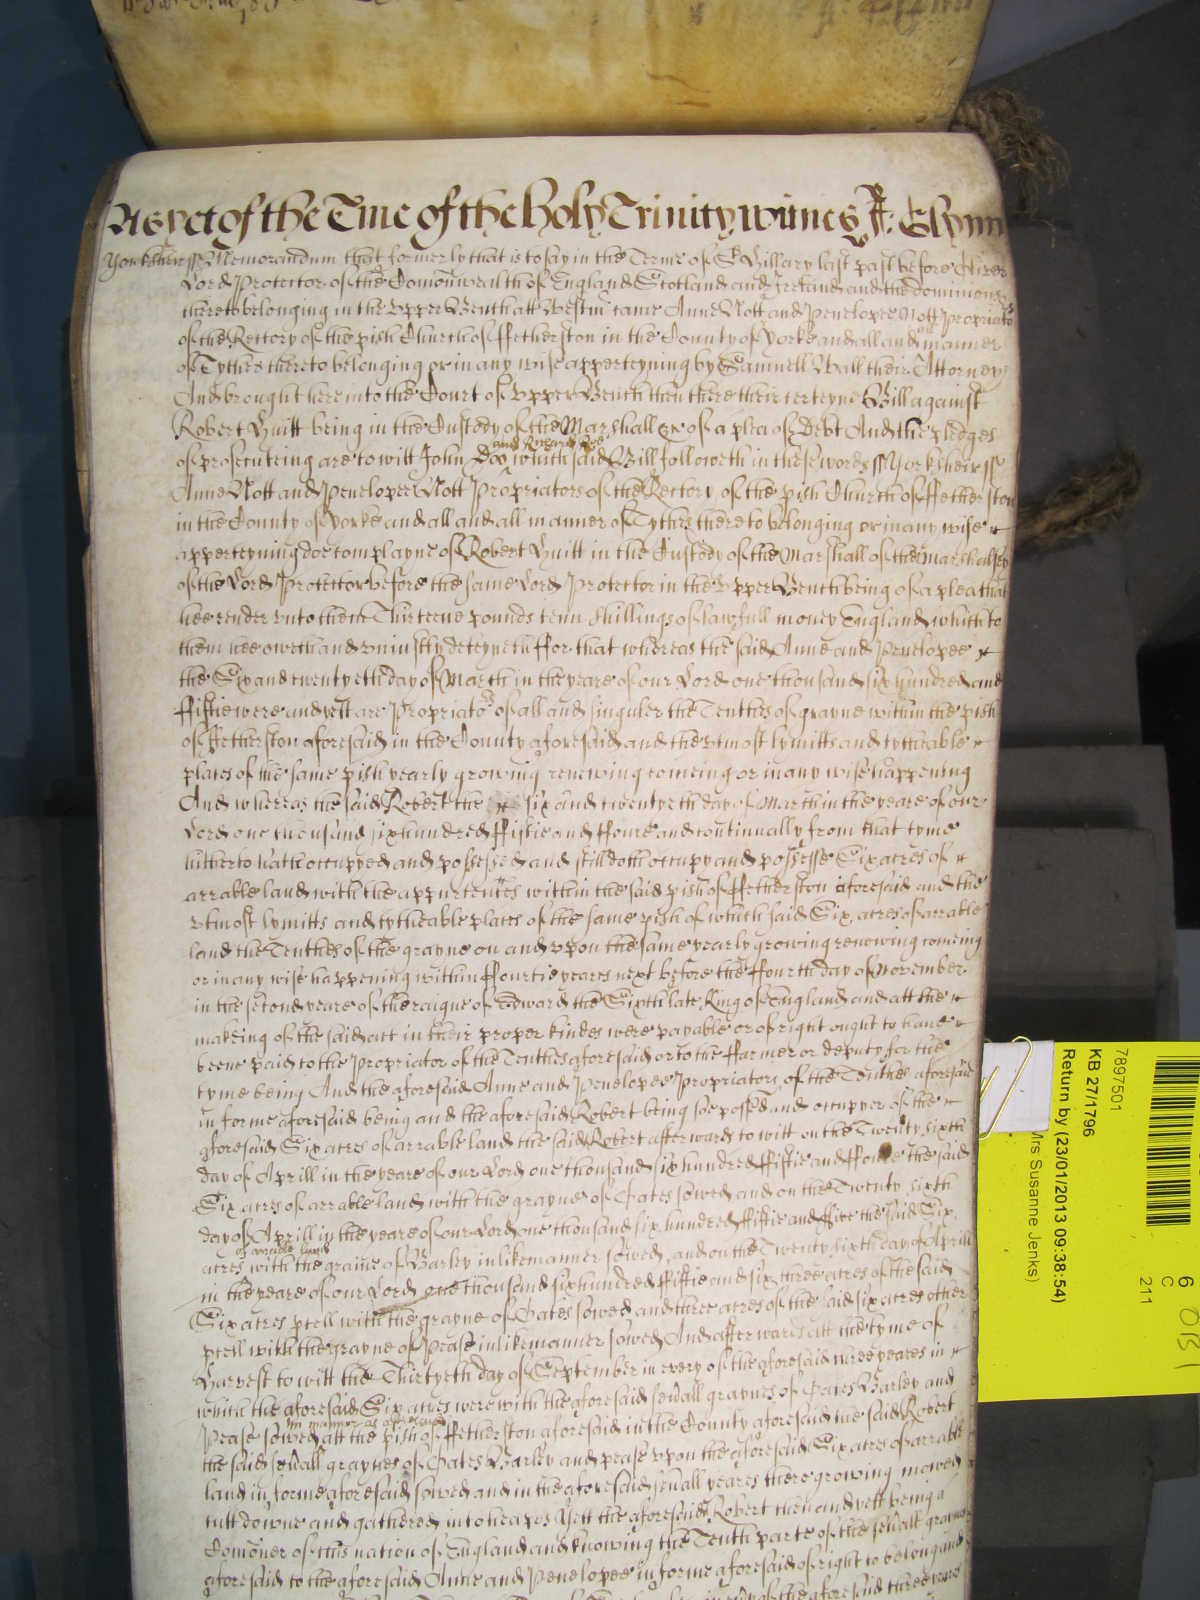 As yet of the Tme of the holy Trinity wittnes J: Glynn
Yorksheir ss Memorandum that formerly that is to say in the Terme of St Hillary last past before Oliver
Lord Protector of the Comonwealth of England Scotland and Ireland and the dominions
thereto belonging in the Upper Bench att Westm came Anne Nott and Penelope Nott Propriators
of the Rectory of the pish Church of Fetherston in the County of Yorke and all and all manner
of Tythes thereto belonging or in any wise apperteyning by Samuell Wall their Attorney
And brought here into the Court of Upper Bench then there their certeyne Bill against
Robert Huitt being in the Custody of the Marshall &c of a plea of Debt And the pledges
and Richard Roe
of prosecuteing are to witt John Doo which said Bill followeth in these words ss Yorksheir ss
Anne Nott and Penelope Nott Propriators of the Rectory of the pish Church of Fetherston
in the County of Yorke and all and all manner of Tythes thereto belonging or in any wise
apperteyning doe complayne of Robert Huitt in the Custody of the Marshall of the Marshalsey
of the Lord Protector before the same Lord Protector in the Upper Bench being of a plea that
hee render unto them Thirteene pounds tenn shillings of lawfull money England which to
them hee oweth and uniustly deteyneth ffor that whereas the said Anne and Penelope
the Six and twentyeth day of March in the yeare of our Lord one thousand six hundred and
ffiftie were and yett are Propriators of all and singuler the Tenthes of grayne within the pish
of Fetherston aforesaid in the County aforesaid and the utmost lymitts and tytheable
places of the same pish yearly growing renewing comeing or in any wise happening
And whereas the said Robert the six and twentyeth day of March in the yeare of our
Lord one thousand six hundred ffiftie and ffoure and continually from that tyme
hitherto hath occupyed and possessed and still doth occupy and possesse Six acres of
arrable land with the appurtences within the said pish of Fetherston aforesaid and the
utmost lymitts and tytheable places of the same pish of which said Six acres of arrable
land the Tenthes of the grayne on and upon the same yearly growing renewing comeing
or in any wise happening within ffourtie yeares next before the ffourth day of November
in the second yeare of the raigne of Edward the Sixth late King of England and att the
makeing of the said act in their proper kindes were payable or of right ought to have
beene paid to the Propriator of the Tenthes aforesaid or to the ffarmer or deputy for the
tyme being And the aforesaid Anne and Penelope Propriators of the Tenthes aforesaid
in forme aforesaid being and the aforesaid Robert being soe possed and occupyer of the
aforesaid Six acres of arrable land the said Robert afterwards to witt on the Twenty sixth
day of Aprill in the yeare of our Lord one thousand six hundred ffiftie and ffoure the said
Six acres of arrable land with the grayne of Oates sowed and on the Twenty sixth
day of Aprill in the yeare of our Lord one thousand six hundred ffiftie and ffive the said Six
of arrable land
acres with the graine of Barley in like manner sowed, and on the Twenty sixth day of Aprill
in the yeare of our Lord one thousand six hundred ffiftie and six three acres of the said
Six acres pcell with the grayne of Oates sowed and three acres of the said six acres other
pcell with the grayne of Pease in like manner sowed And afterwards att the tyme of
Harvest to witt the Thirtyeth day of September in every of the aforesaid three yeares in
which the aforesaid Six acres were with the aforesaid sevall graynes of Oates Barley and
in manner as aforesaid
Pease sowed att the pish of Fetherston aforesaid in the County aforesaid the said Robert
the said sevall graynes of Oates Barley and pease upon the aforesaid Six acres of arrable
land in forme aforesaid sowed and in the aforesaid sevall yeares there growing mowed
cutt downe and gathered into heapes Yett the aforesaid Robert then and yett being a
Comoner of this nation of England and knowing the Tenth parte of the sevall graynes
aforesaid to the aforesaid Anne and Penelope in forme aforesaid of right to belong and
the aforesaid three yeares
7897501
KB 27/1796
Return by (23/01/2013 09:38:54)
Mrs Susanne Jenks)
6
C
211